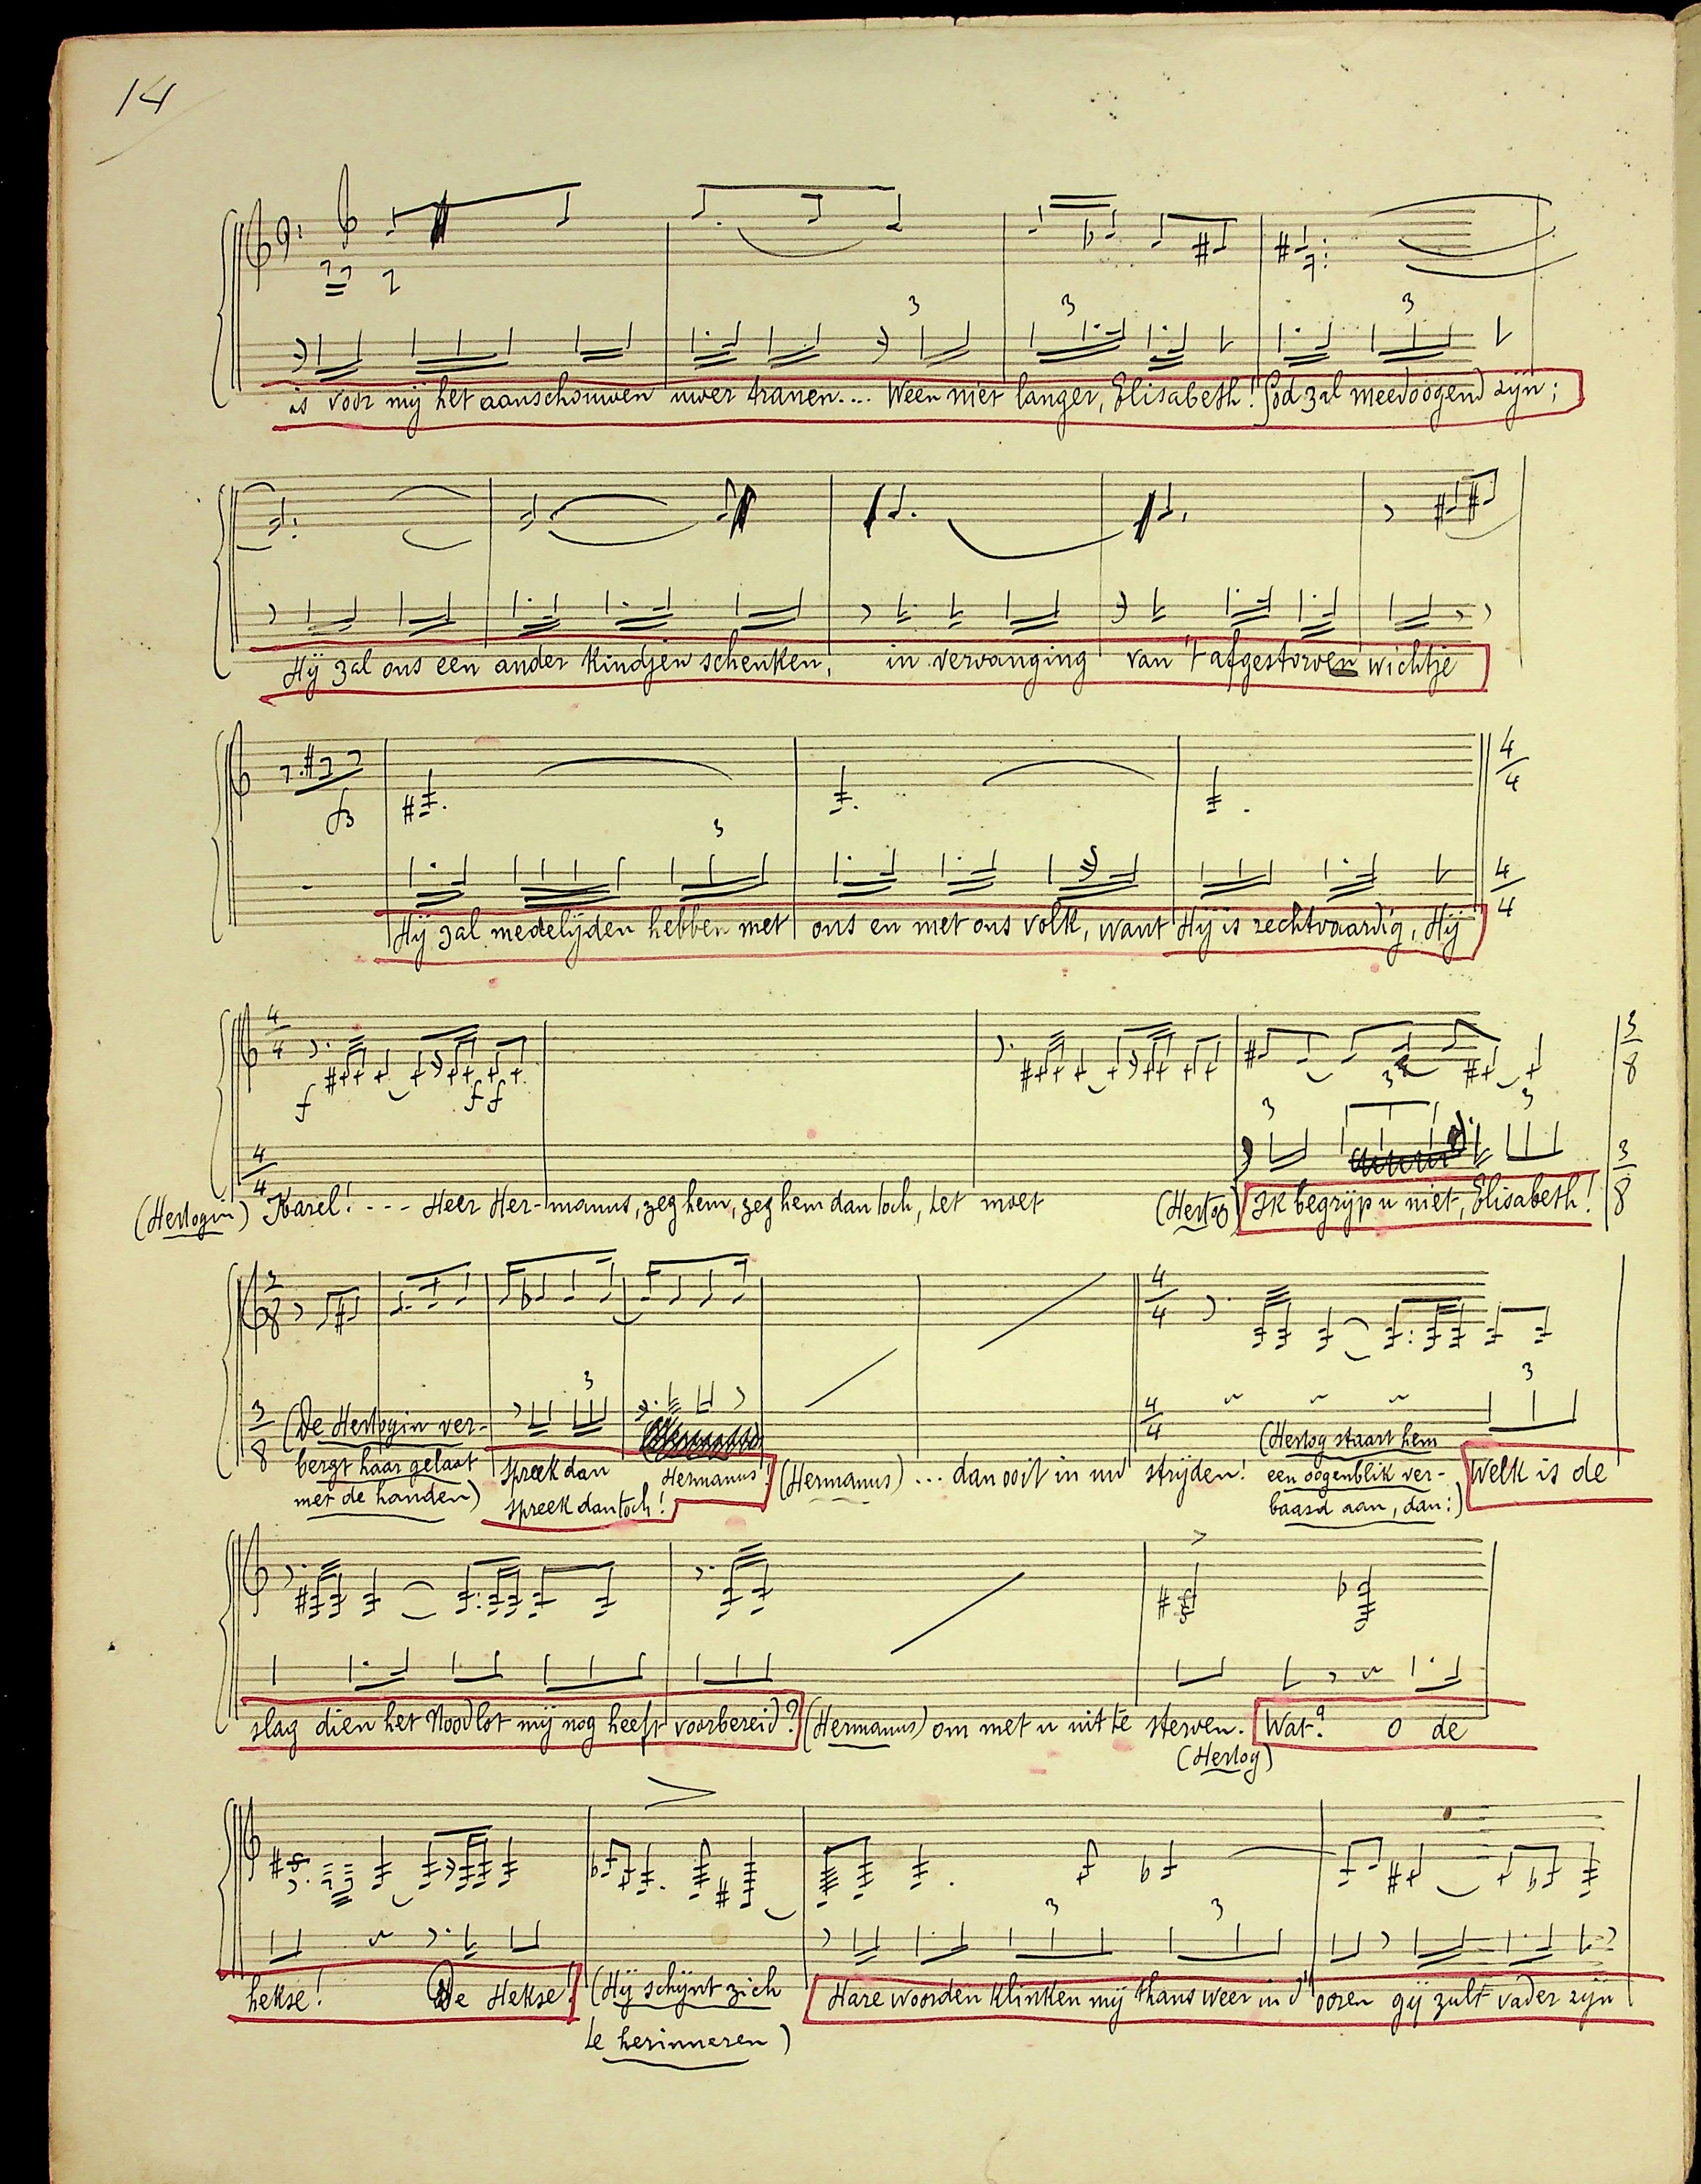 14
is voor mij het aanschouwen uwer tranen.... Ween niet langer, Elisabeth! God zal meedoogend zijn;
Hij zal ons een ander kindjen schenken, in vervanging van 't afgestorven wichtje
Hij zal medelijden hebben met ons en met ons volk, want Hij is rechtvaardig, Hij
(Hertogin) Karel! --- Heer Her-manus, zeg hem, zeg hem dan toch, het moet (Hertog) Ik begrijp u niet, Elisabeth!
(De Hertogin ver-
bergt haar gelaat
met de handen)
spreek dan Hermanus!
spreek dan toch!
(Hermanus) ... dan ooit in uw strijden!
(Hertog staart hem
een oogenblik ver-
baasd aan, dan:)
Welk is de
slag dien het Noodlot mij nog heeft voorbereid? (Hermanus) om met u uit te sterven. Wat? O de
(Hertog)
hekse! De Hekse! (Hij schijnt zich
te herinneren)
Hare woorden klinken mij thans weer in d' ooren gij zult vader zijn